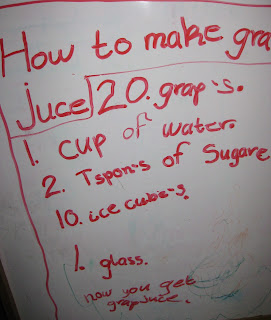 How to make gra
juce 20. grap's.
1. cup of water.
2. Tspon's of Sugare
10. ice cubie's.
1. glass.
now you get
grapjuice.